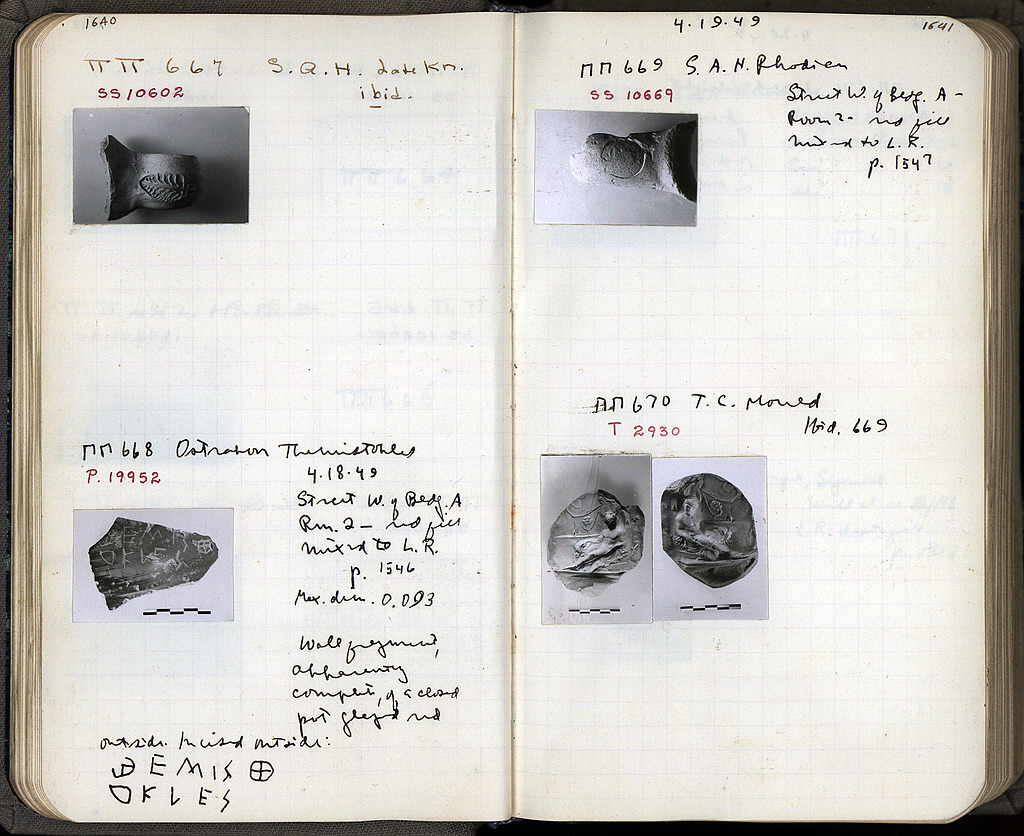 1640
ΠΠ 667 S.A.H. late Kn.
SS 10602 ibid.
ΠΠ 668 Ostrakon Themistokles
P. 19952 4.18.49
Street W. of Bldg. A
Rm. 2 – red fill
mixed to L.R.
p. 1546
Max. dim. 0.093
Wall fragment,
apparently
complete, of a closed
pot glazed red
outside. Incised outside:
ⴲEMIS⊕
OKLES
4.19.49
1641
ΠΠ 669 S.A.H. Rhodian
SS 10669 Street W. of Bldg. A –
Room 2 – red fill
mixed to L.R.
p. 1547
ΠΠ 670 T.C. Mould
T 2930 Ibid. 669